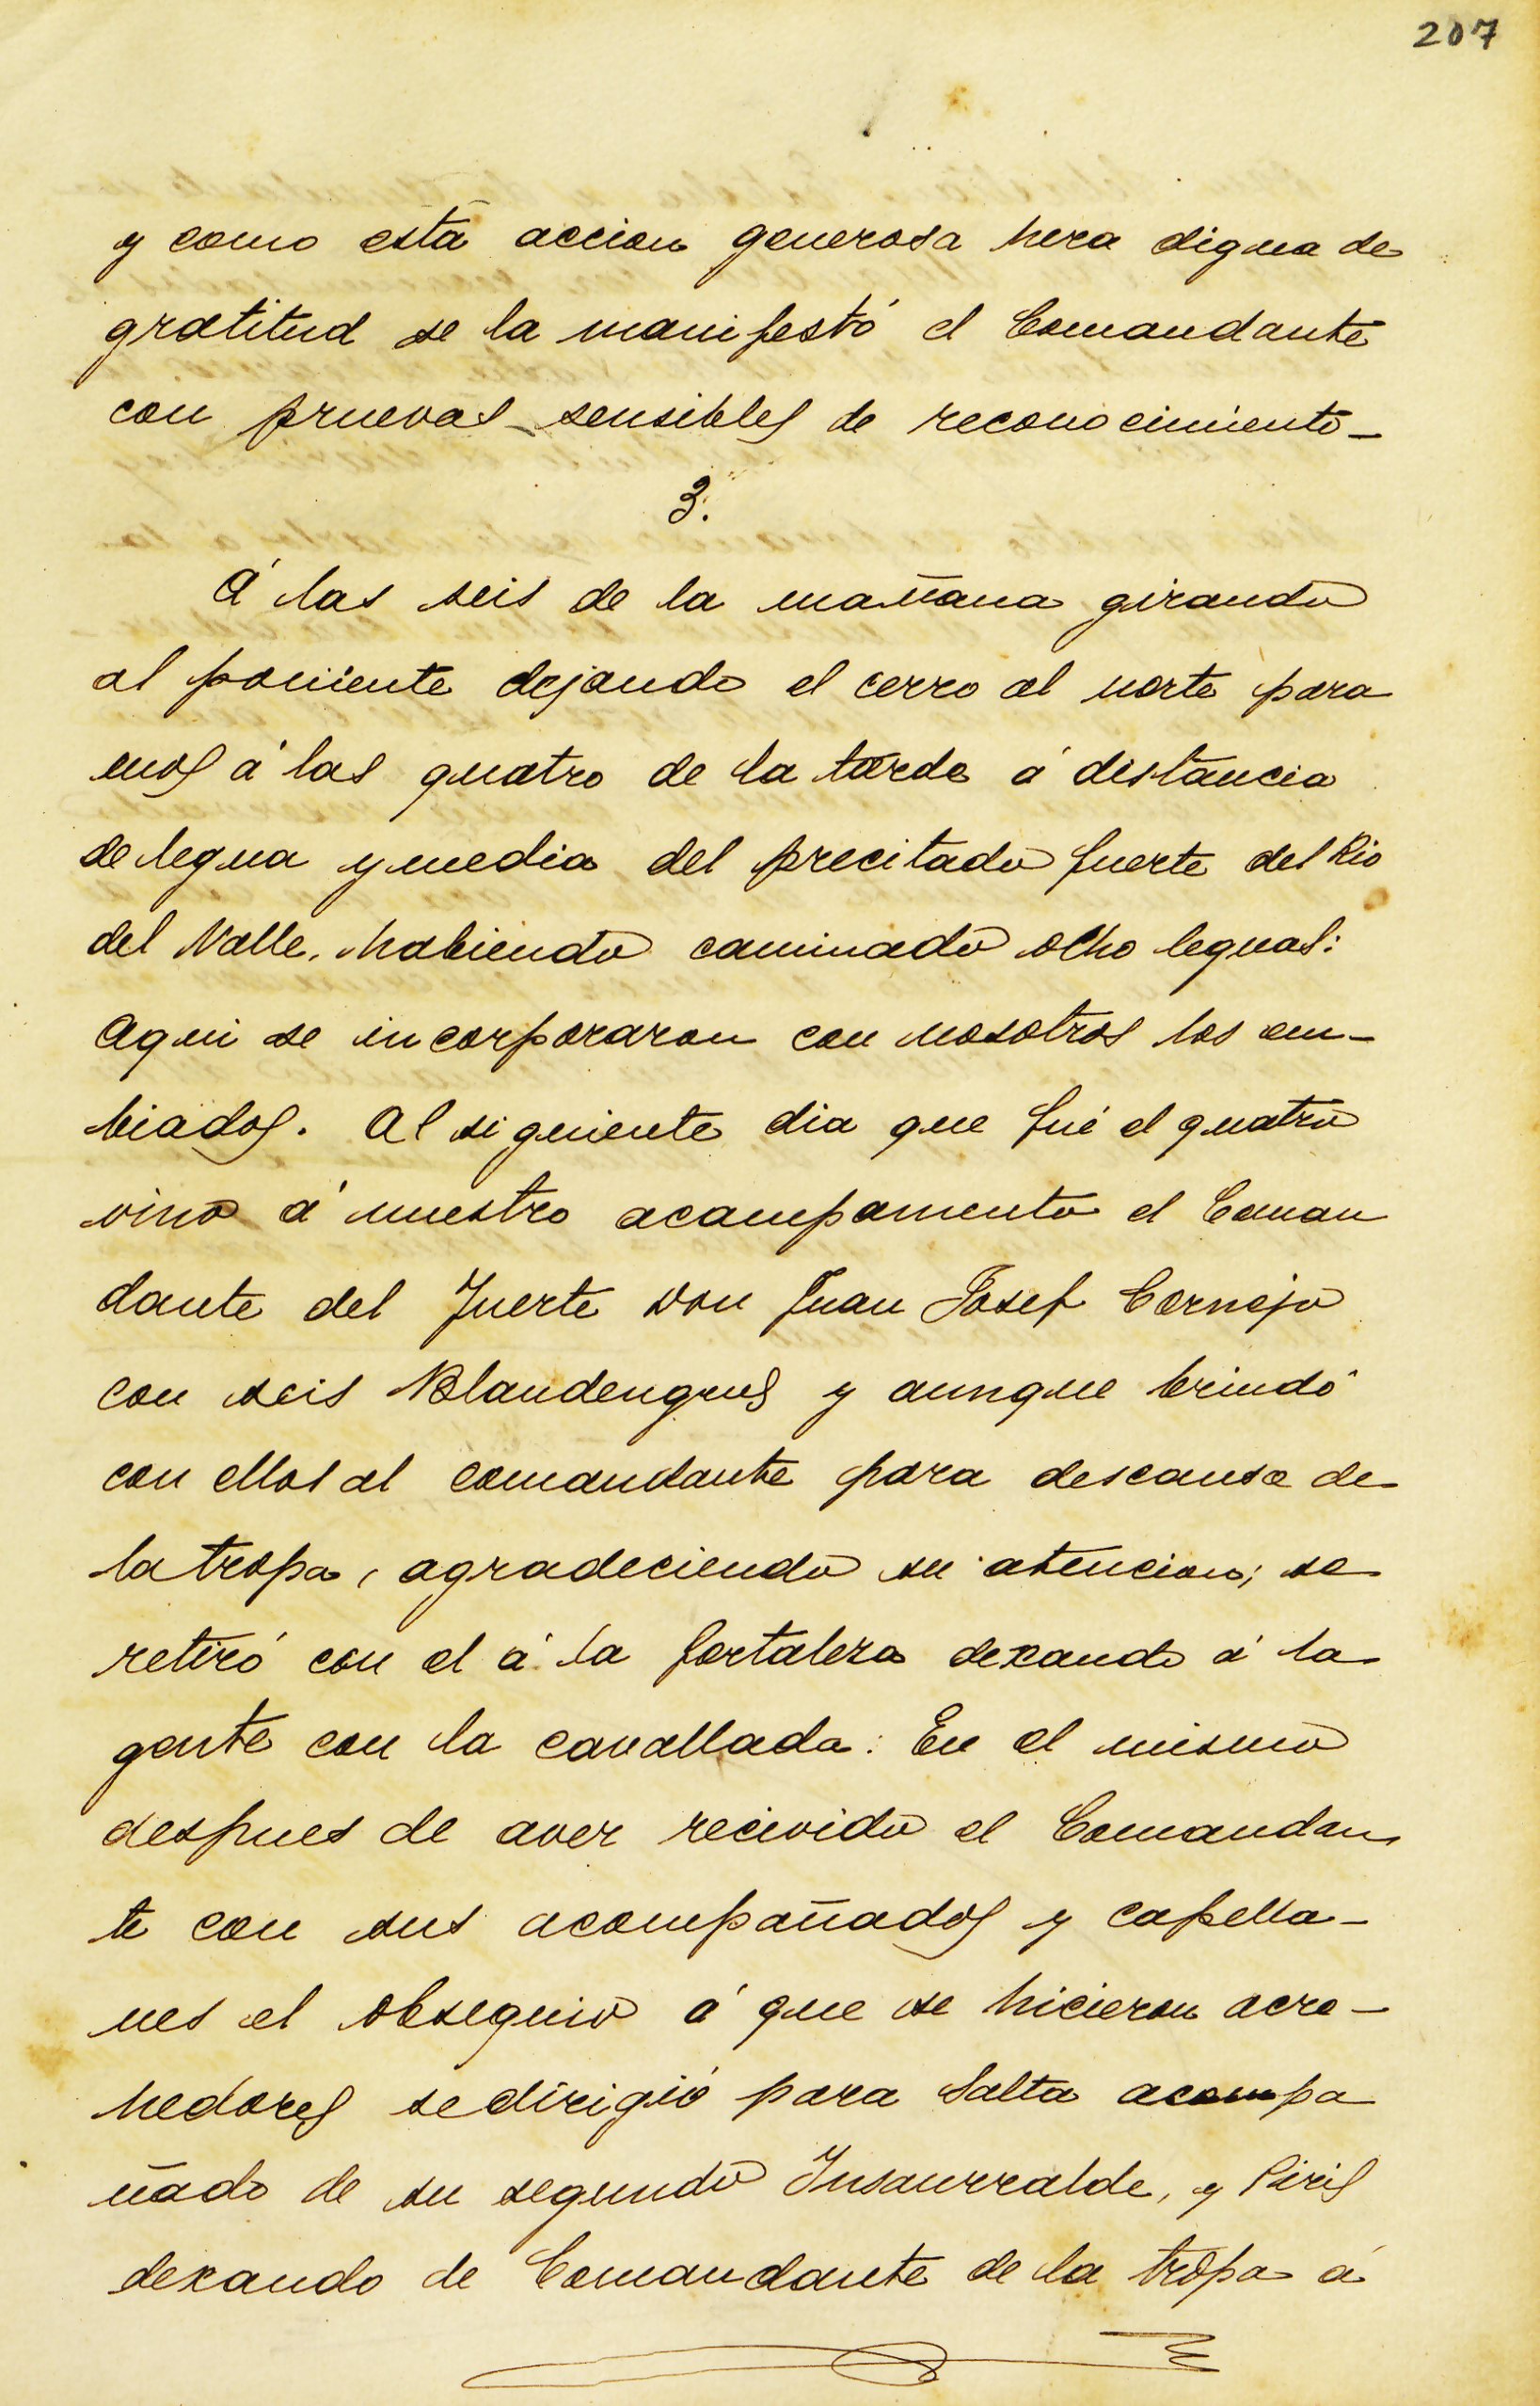 207
y como esta accion generosa hera digna de
gratitud se la manifestó el Comandante
con pruevas sensibles de reconocimiento_
3.
Á las seis de la mañana girando
al poniente dejando el cerro al norte para
mos á las quatro de la tarde á distancia
de legua y media del precitado fuerte del Rio
del Valle, habiendo caminado ocho leguas:
Aqui se incorporaron con nosotros los em-
biados. Al siguiente dia que fué el quatro
vino á nuestro acampamento el Coman
dante del Fuerte Don Juan Josef Cornejo
con seis Blandengues y aunque brindó
con ellos al comandante para descanso de
la tropa, agradeciendo su atencion; se
retiró con el á la fortaleza dexando á la
gente con la cavallada: En el mismo
despues de aver recivido el Comandan
te con sus acompañados y capella-
nes el obsequio á que se hicieron acre-
hedores se dirigió para Salta acompa
ñado de su segundo Insaurralde, y Piris
dexando de Comandante de la tropa á